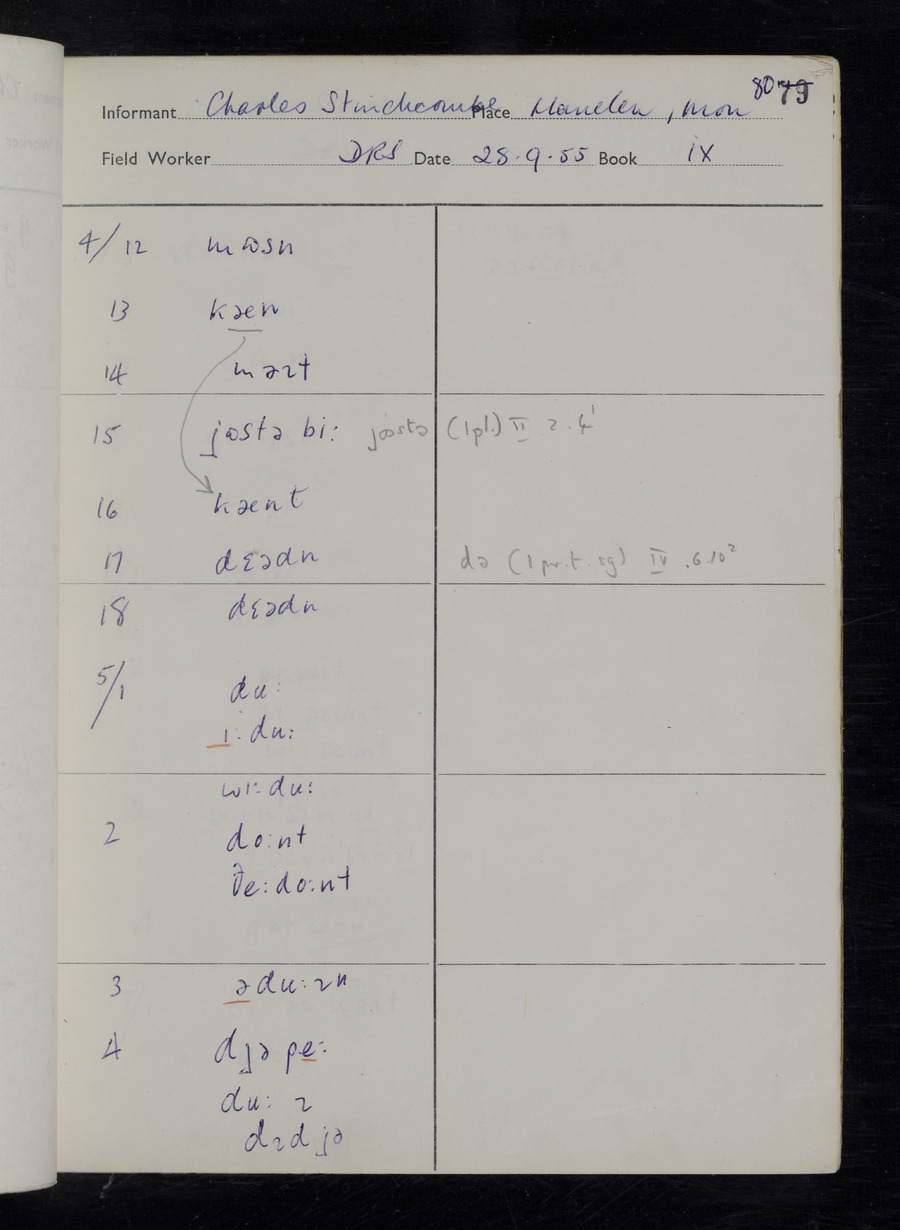 80 79
Informant Charles Stinchcombe Place Llanelen, Mon
Field Worker DRS Date 28.9.55 Book IX
4/12 mɒsn
13 kəen
14 məɪt
15 jɒstə bi: jɒstə (1pl.) II 2.4¹
16 kəent
17 dɛədn də (1pr.t.sg) IV .6.10²
18 dɛədn
5/1 du:
i: du:
wi: du:
2 do:nt
ðe: do:nt
3 ə du: ɪn
4 djə pe:
du: ɪ
dɪdjə